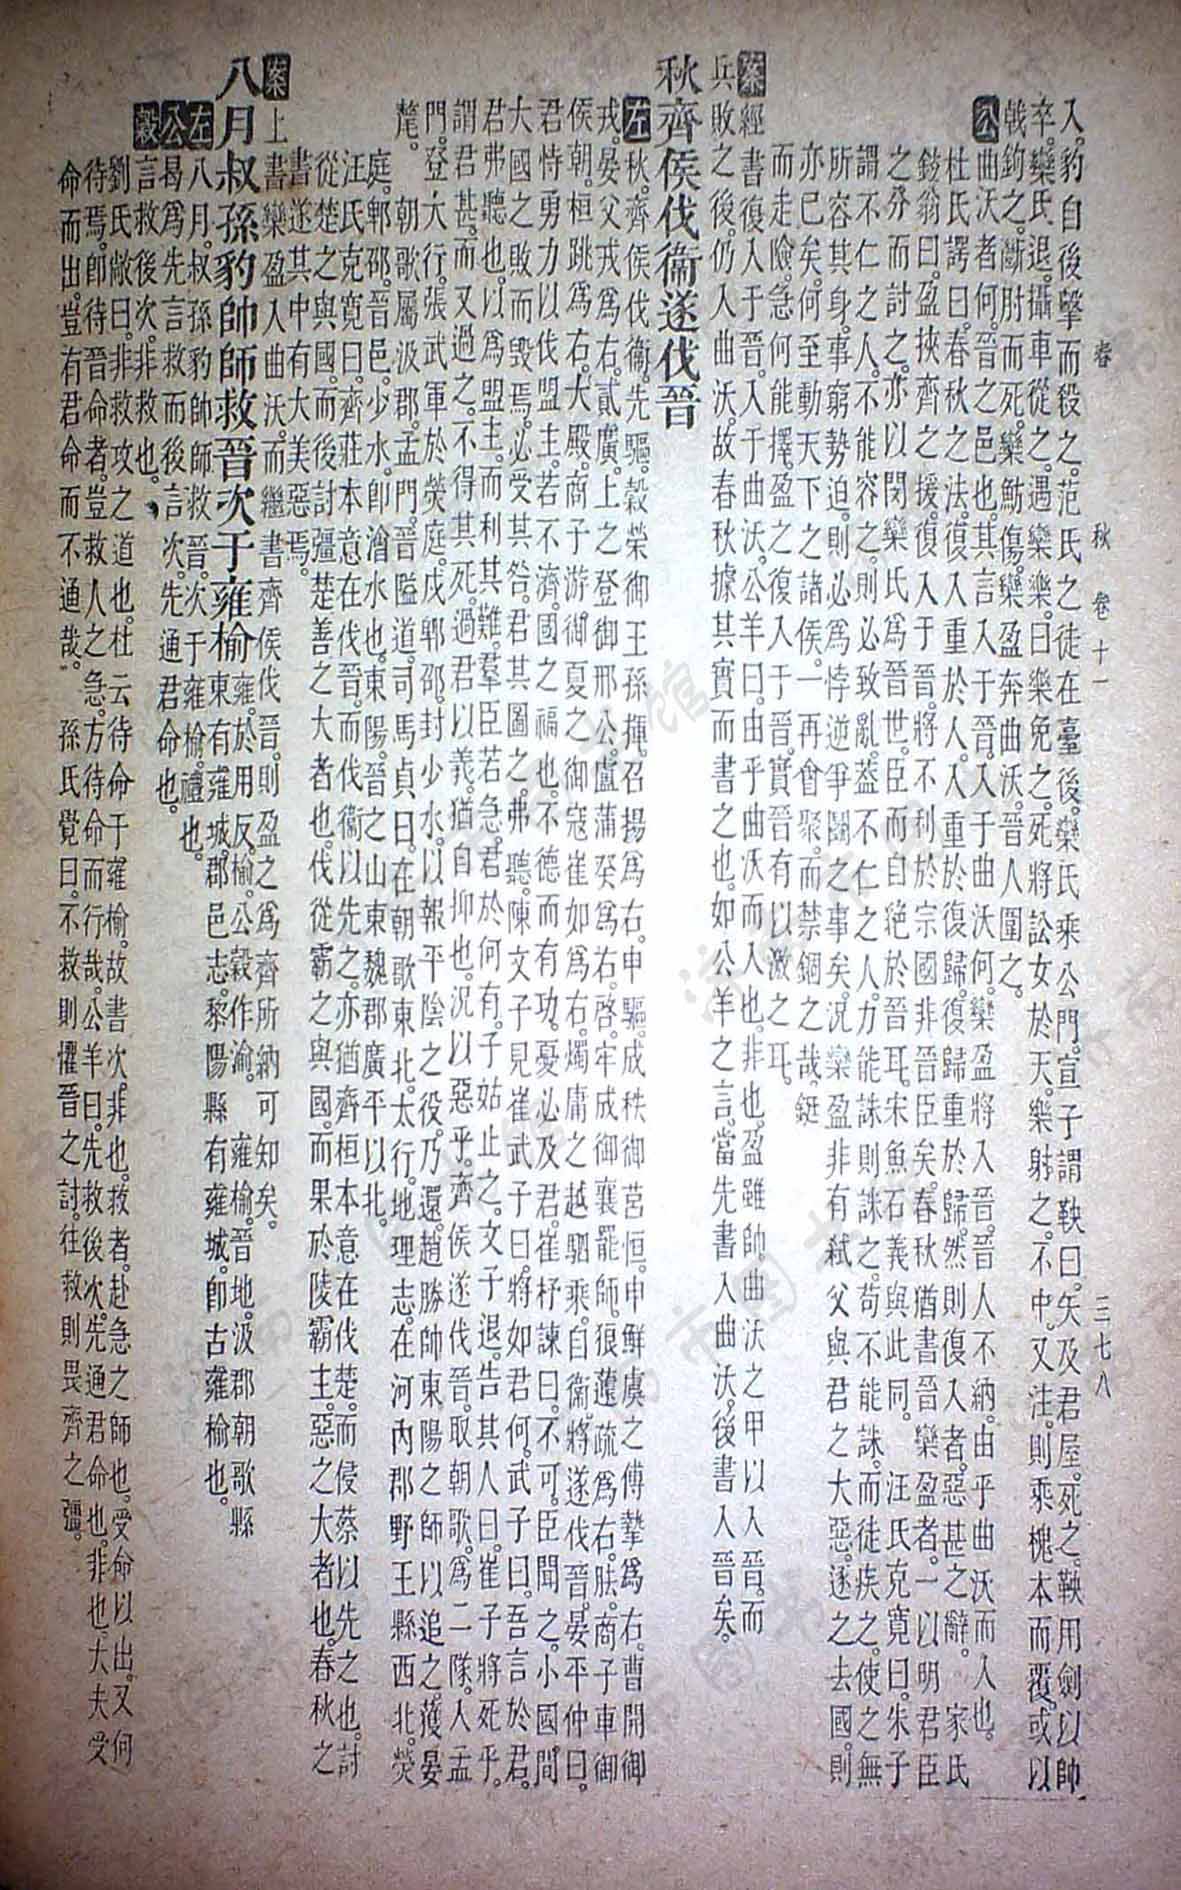 春　秋　卷十一　三七八
入豹自後擊而殺之范氏之徒在臺後欒氏乘公門宣子謂鞅曰矢及君屋死之鞅用劍以帥
卒欒氏退攝車從之遇欒樂曰樂免之死將訟女於天樂射之不中又注則乘槐本而覆或以
戟鉤之斷肘而死欒魴傷欒盈奔曲沃晉人圍之
公曲沃者何晉之邑也其言入于晉入于曲沃何欒盈將入晉晉人不納由乎曲沃而入也
杜氏諤曰春秋之法復入重於人入重於復歸復歸重於歸然則復入者惡甚之辭　家氏
鉉翁曰盈挾齊之援復入于晉將不利於宗國非晉臣矣春秋猶書晉欒盈者一以明君臣
之分而討之亦以閔欒氏爲晉世臣而自絕於晉耳宋魚石義與此同　汪氏克寬曰朱子
謂不仁之人不能容之則必致亂蓋不仁之人力能誅則誅之苟不能誅而徒疾之使之無
所容其身事窮勢迫則必爲悖逆爭鬬之事矣況欒盈非有弑父與君之大惡逐之去國則
亦已矣何至動天下之諸侯一再會聚而禁錮之哉鋌
而走險急何能擇盈之復入于晉實晉有以激之耳
案經書復入于晉入于曲沃公羊曰由乎曲沃而入也非也盈雖帥曲沃之甲以入晉而
兵敗之後仍入曲沃故春秋據其實而書之也如公羊之言當先書入曲沃後書入晉矣
秋齊侯伐衞遂伐晉
左秋齊侯伐衞先驅穀榮御王孫揮召揚爲右申驅成秩御莒恒申鮮虞之傅摯爲右曹開御
戎晏父戎爲右貳廣上之登御邢公盧蒲癸爲右啓牢成御襄罷師狼蘧疏爲右胠商子車御
侯朝桓跳爲右大殿商子游御夏之御寇崔如爲右燭庸之越駟乘自衞將遂伐晉晏平仲曰
君恃勇力以伐盟主若不濟國之福也不德而有功憂必及君崔杼諫曰不可臣聞之小國間
大國之敗而毀焉必受其咎君其圖之弗聽陳文子見崔武子曰將如君何武子曰吾言於君
君弗聽也以爲盟主而利其難羣臣若急君於何有子姑止之文子退告其人曰崔子將死乎
謂君甚而又過之不得其死過君以義猶自抑也況以惡乎齊侯遂伐晉取朝歌爲二隊入孟
門登大行張武軍於熒庭戍郫邵封少水以報平陰之役乃還趙勝帥東陽之師以追之獲晏
氂　朝歌屬汲郡孟門晉隘道司馬貞曰在朝歌東北太行地理志在河內郡野王縣西北熒
庭郫邵晉邑少水卽澮水也東陽晉之山東魏郡廣平以北
汪氏克寬曰齊莊本意在伐晉而伐衞以先之亦猶齊桓本意在伐楚而侵蔡以先之也討
從楚之與國而後討彊楚善之大者也伐從霸之與國而果於陵霸主惡之大者也春秋之
書遂其中有大美惡焉
案上書欒盈入曲沃而繼書齊侯伐晉則盈之爲齊所納可知矣
八月叔孫豹帥師救晉次于雍榆雍於用反榆公穀作渝　雍榆晉地汲郡朝歌縣
東有雍城郡邑志黎陽縣有雍城卽古雍榆也
左八月叔孫豹帥師救晉次于雍榆禮也
公曷爲先言救而後言次先通君命也
穀言救後次非救也
劉氏敞曰非救攻之道也杜云待命于雍榆故書次非也救者赴急之師也受命以出又何
待焉卽待晉命者豈救人之急方待命而行哉公羊曰先救後次先通君命也非也大夫受
命而出豈有君命而不通哉　孫氏覺曰不救則懼晉之討往救則畏齊之彊